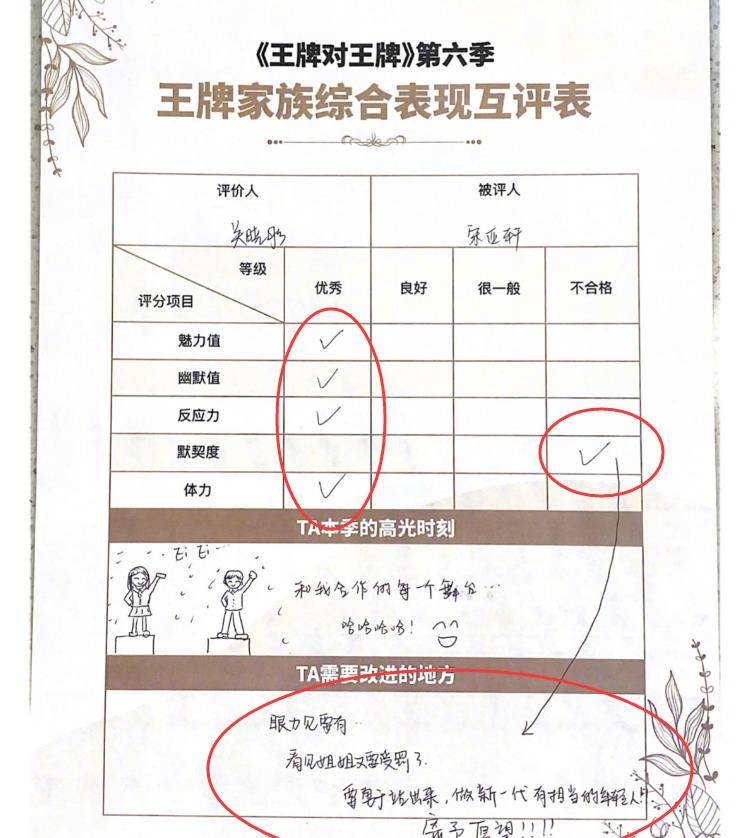 《王牌对王牌》第六季
王牌家族综合表现互评表
评价人
被评人
吴晓彤
宋亚轩
等级
评分项目
优秀
良好
很一般
不合格
魅力值
幽默值
反应力
默契度
体力
TA本季的高光时刻
Ei Ei
和我合作的每一个舞台…
哈哈哈哈!
TA需要改进的地方
眼力见要有…
看见姐姐又要受罚了.
要勇于站出来,做新一代有担当的年轻人!!
寄予厚望!!!!